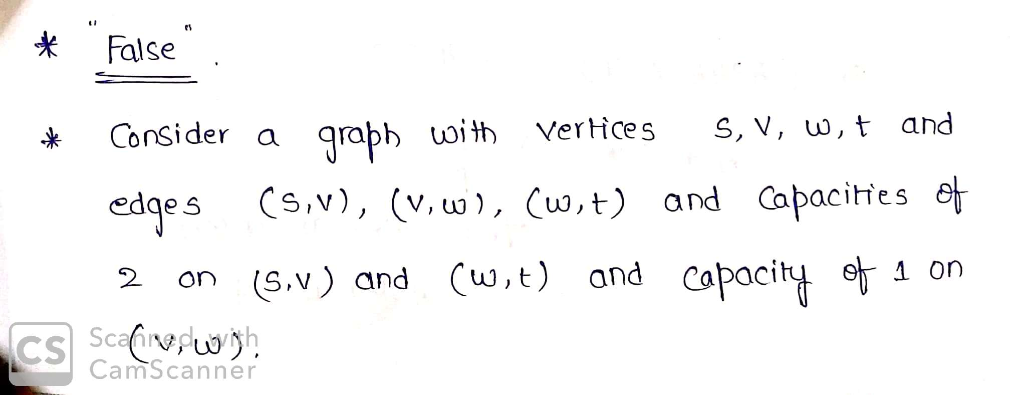 * "False".
* Consider a graph with vertices s, v, w, t and
edges (s,v), (v,w), (w,t) and capacities of
2 on (s,v) and (w,t) and capacity of 1 on
(v,w).
CS Scanned with
CamScanner